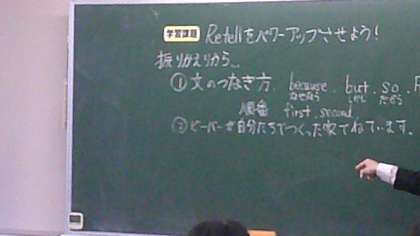 学習課題 Retellをパワーアップさせよう!
振りかえりから…
① 文のつなぎ方 because but so
なぜなら しかし だから
順番 first, second,
② ビーバーが自分たちでつくった家でねています